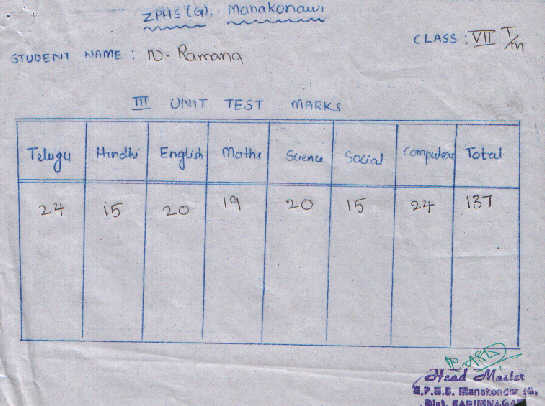 ZPHS (G), Manakondur
CLASS : VII T/M
STUDENT NAME : N. Ramana
III UNIT TEST MARKS
Telugu Hindhi English Maths Science Social Computers Total
24 15 20 19 20 15 24 137
Head Master
Z.P.S.S. Manakondur (G),
Dist. KARIMNAGAR